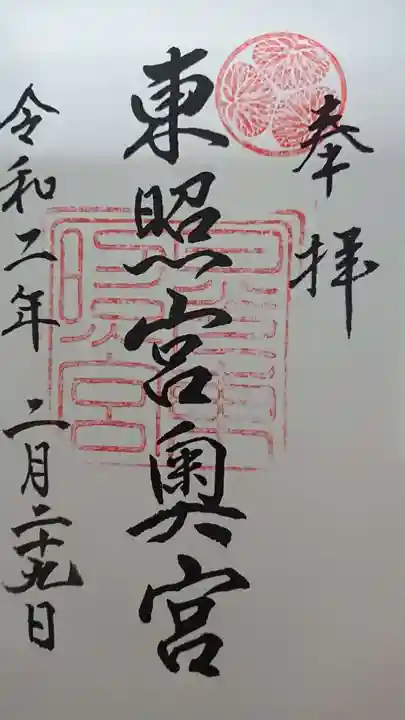 奉拝
東照宮奥宮
令和二年 二月二十九日